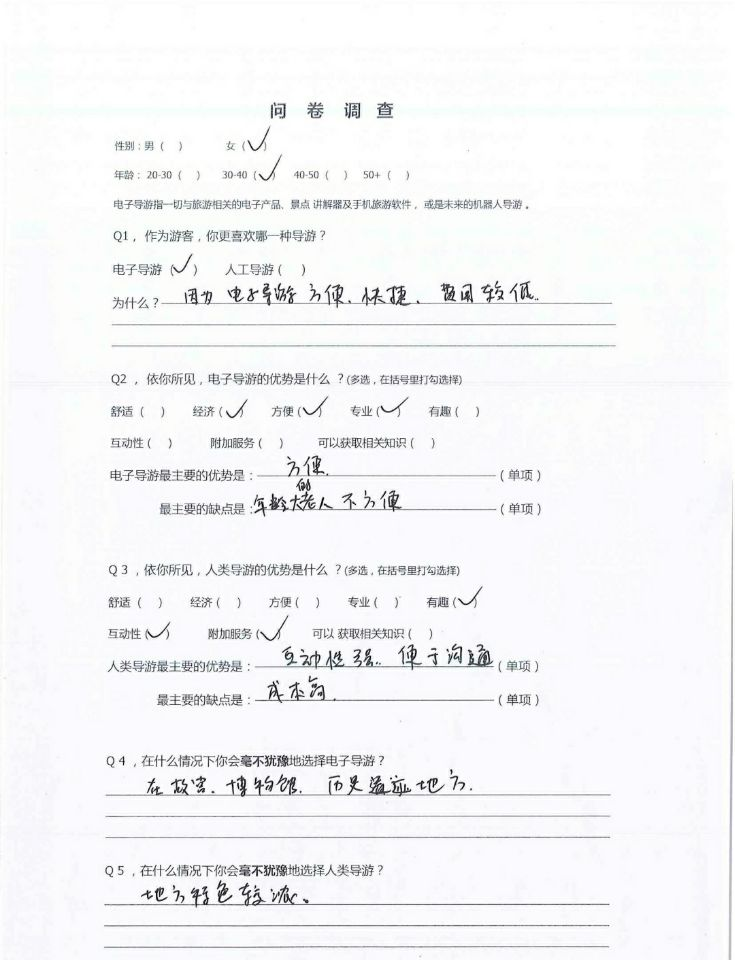 问 卷 调 查
性别：男（ ） 女（✓）
年龄： 20-30（ ） 30-40（✓） 40-50（ ） 50+（ ）
电子导游指一切与旅游相关的电子产品、景点 讲解器及手机旅游软件， 或是未来的机器人导游 。
Q1， 作为游客，你更喜欢哪一种导游？
电子导游（✓） 人工导游（ ）
为什么？因为 电子导游 方便、快捷、费用较低.
Q2 ， 依你所见，电子导游的优势是什么 ？(多选，在括号里打勾选择)
舒适（ ） 经济（✓） 方便（✓） 专业（✓） 有趣（ ）
互动性（ ） 附加服务（ ） 可以获取相关知识（ ）
电子导游最主要的优势是：方便.（单项）
最主要的缺点是：年龄大的老人 不方便（单项）
Q 3 ，依你所见，人类导游的优势是什么 ？(多选，在括号里打勾选择)
舒适（ ） 经济（ ） 方便（ ） 专业（ ） 有趣（✓）
互动性（✓） 附加服务（✓） 可以 获取相关知识（ ）
人类导游最主要的优势是：互动性强.. 便于沟通（单项）
最主要的缺点是：成本高.（单项）
Q 4 ，在什么情况下你会毫不犹豫地选择电子导游？
在故宫、博物馆. 历史遗迹地方.
Q 5 ，在什么情况下你会毫不犹豫地选择人类导游？
地方特色较浓。